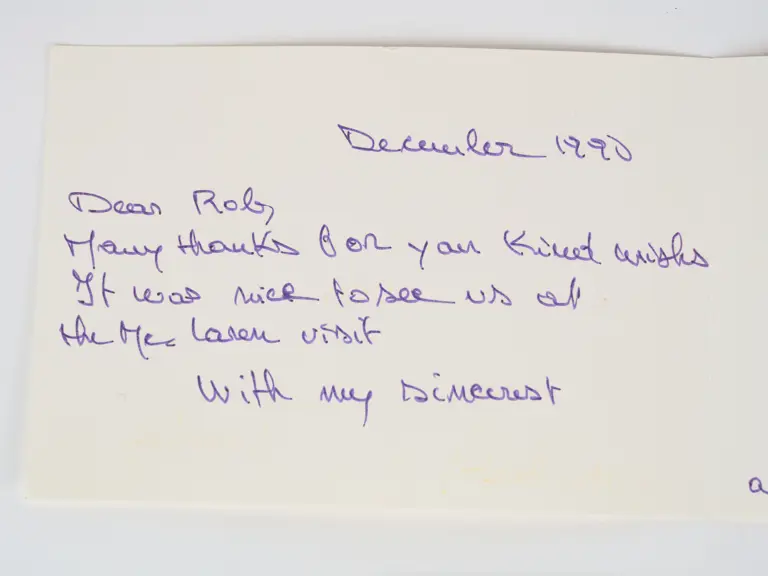 December 1990
Dear Rob,
Many thanks for your kind wishs
It was nice to see us at
the Mc Laren visit
With my sincerest
a